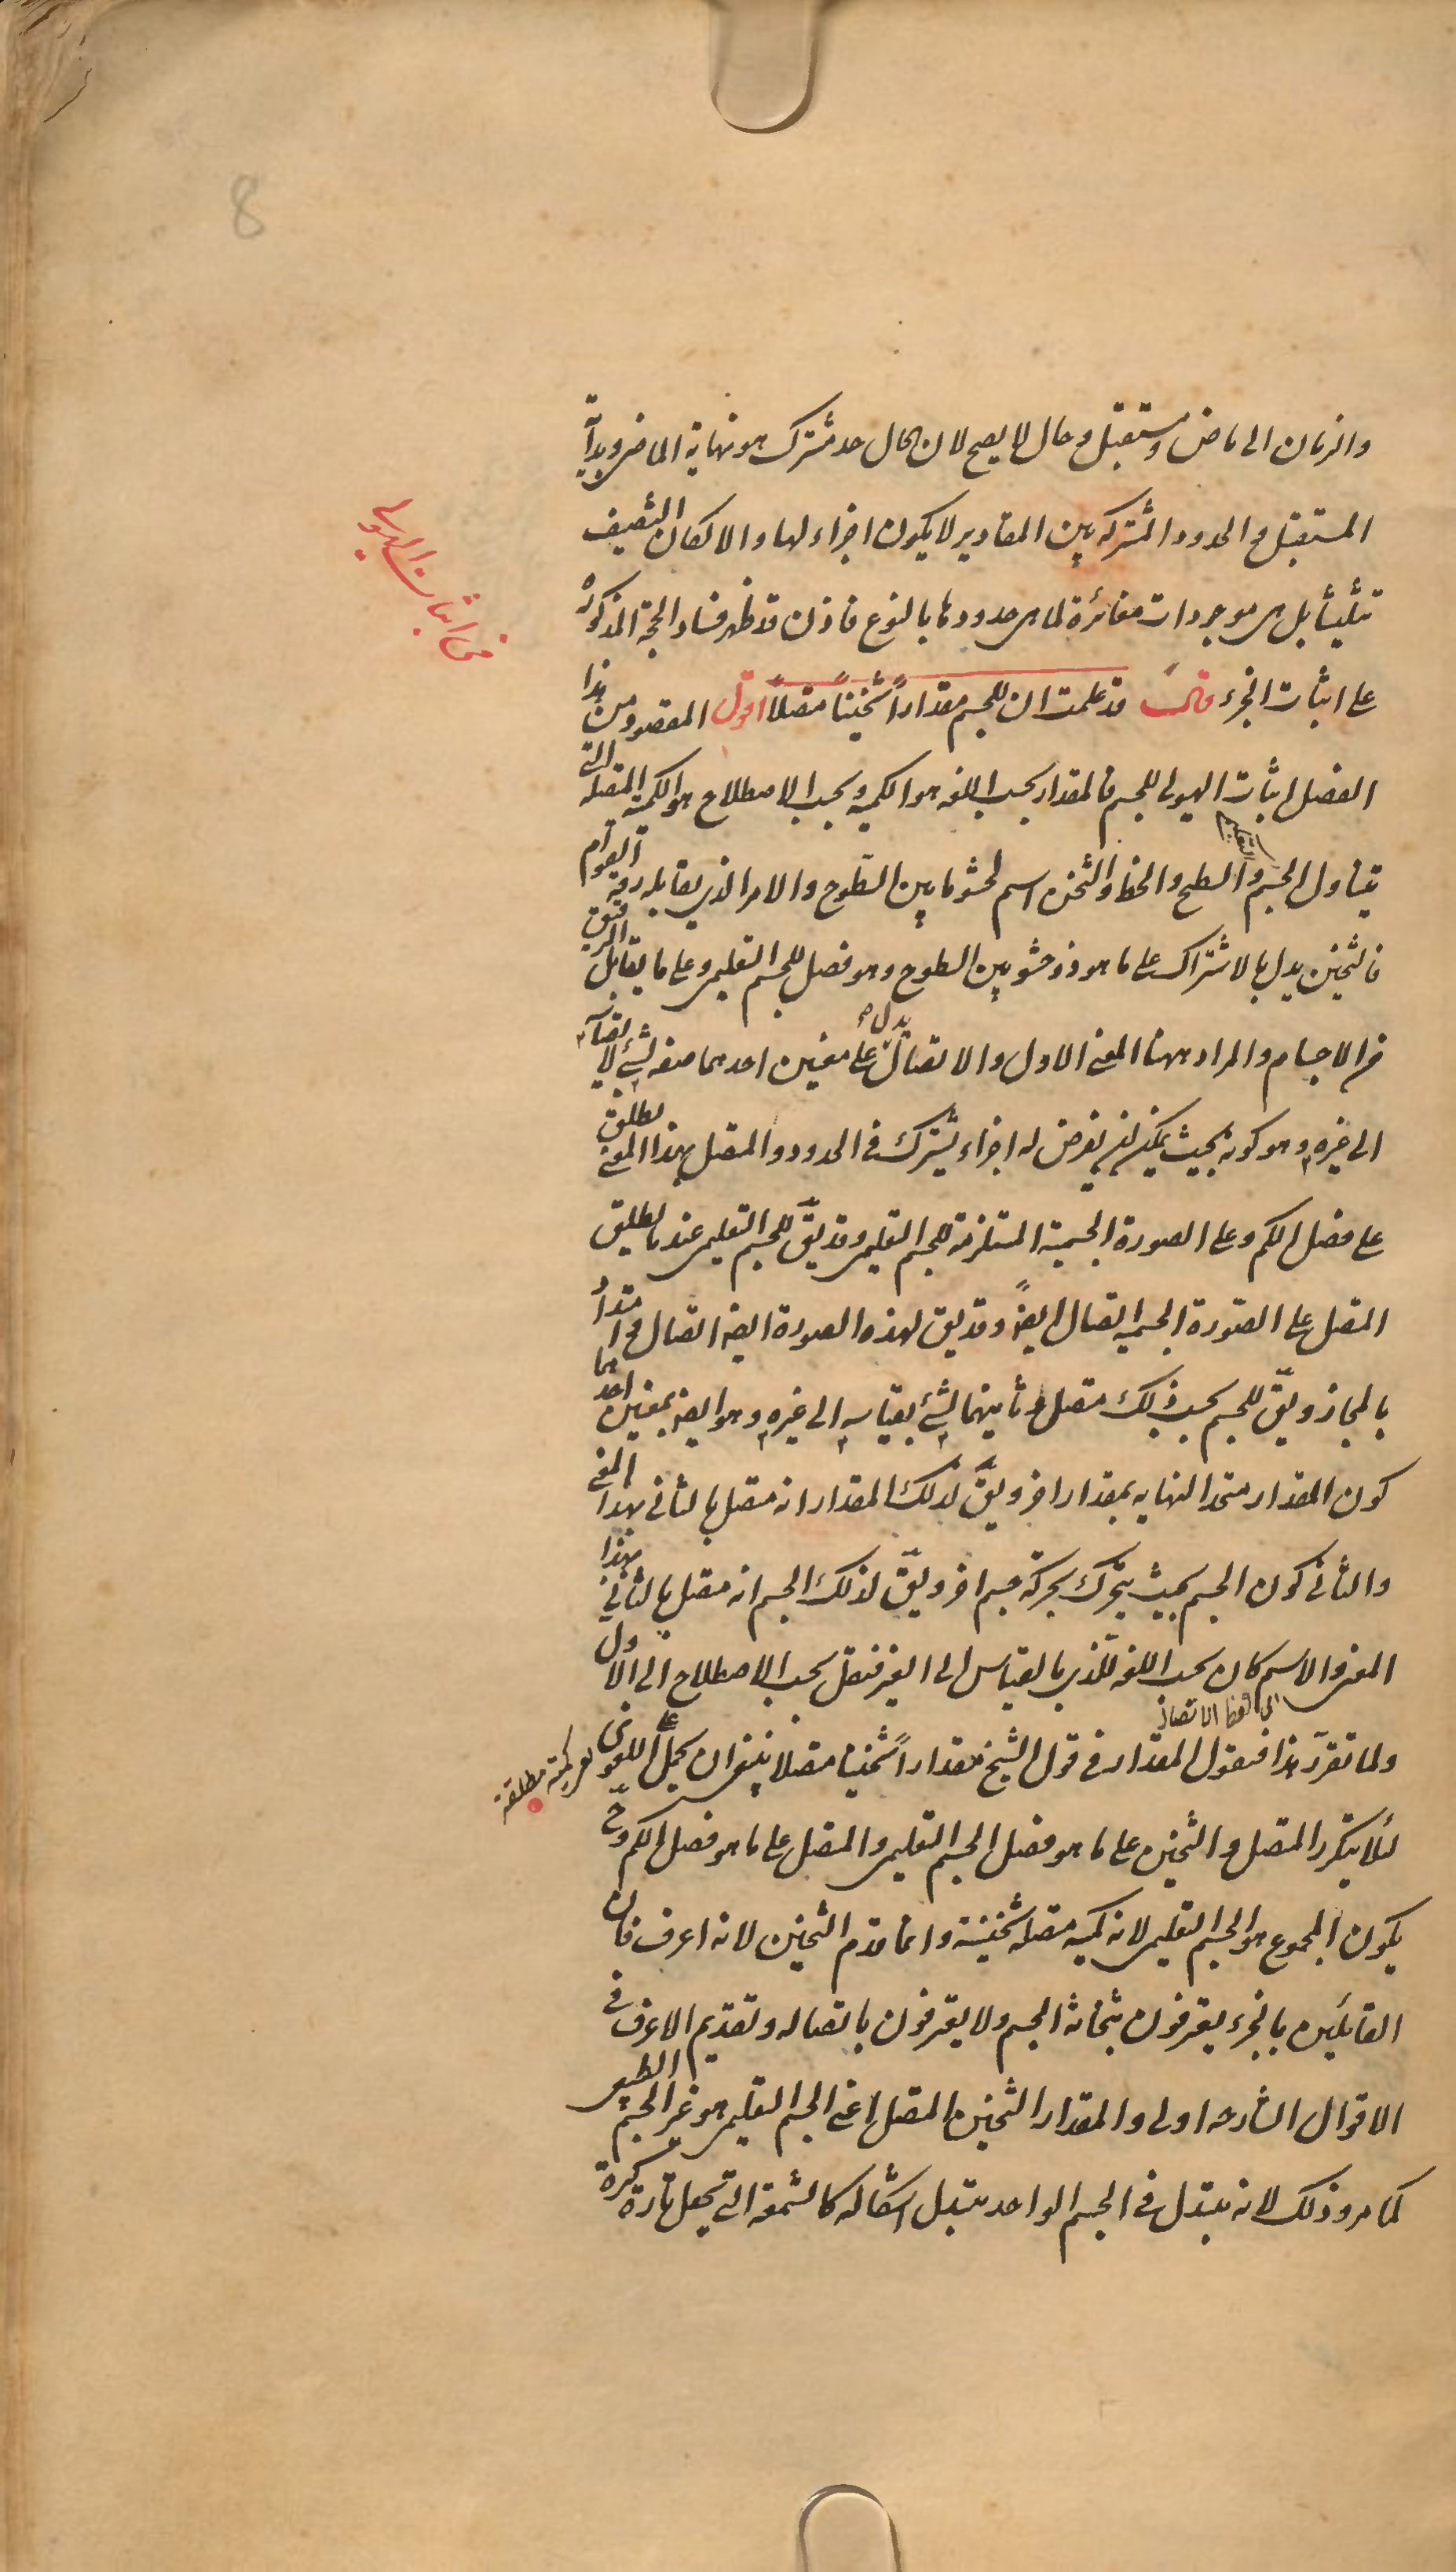 8
والزمان الى ماض ومستقبل وحال لا يصح لان الحال حد مشترك هو نهاية الماضى وبداية
المستقبل والحدود المشتركة بين المقادير لا يكون اجزاء لها والا لكان التنصيف
تثليثا بل هى موجودات مغائرة لما هى حدودها بالنوع فاذن قد ظهر فساد الحجة المذكورة
على اثبات الجزء قال قد علمت ان للجسم مقداراً ثخيناً متصلاً اقول المقصود من هذا
فى اثبات الهيولى
الفصل اثبات الهيولى للجسم فالمقدار بحسب اللغه هو الكميه وبحسب الاصطلاح هو الكمية المتصله التى
يتناول الجسم التعليمى والسطح والخط والثخن اسم لحشو ما بين السطوح والامر الذى يقابله رقة القوام
فالثخين يدل بالاشتراك على ما هو ذو حشو بين السطوح وهو فصل للجسم التعليمى وعلى ما يقابل الرقيق
من الاجسام والمراد ههنا المعنى الاول والاتصال يدل على معنيين احدهما صفه لشئ لا بقياسه
الى غيره وهو كونه بحيث يمكن ان يفرض له اجزاء يشترك فى الحدود والمتصل بهذا المعنى يطلق
على فصل الكم وعلى الصورة الجسمية المستلزمة للجسم التعليمى وقد يق للجسم التعليمى عندما يطلق
المتصل على الصورة الجسميه اتصال ايضً وقد يق لهذه الصورة ايضا اتصال وامتداد
بالمجاز ويق للجسم بحسب ذلك متصل وثانيهما لشئ بقياسه الى غيره وهو ايضا بمعنيين احدهما
كون المقدار متحد النهايه بمقدار اخر ويق لذلك المقدار انه متصل بالثانى بهذا المعنى
والثانى كون الجسم بحيث يتحرك بحركة جسم اخر ويق لذلك الجسم انه متصل بالثانى بهذا
المعنى والاسم كان بحسب اللغه للذى بالقياس الى الغير فنقل بحسب الاصطلاح الى الاول
اى لفظ الاتصال
ولما تقرر هذا فنقول المقدار فى قول الشيخ مقداراً ثخينا متصلا ينبغى ان يحمل على اللغوى
هو كمية مطلقة
لئلا يتكرر المتصل والثخين على ما هو فصل الجسم التعليمى والمتصل على ما هو فصل الكم وح
يكون المجموع هو الجسم التعليمى لانه كميه متصله ثخينة وانما قدم الثخين لانه اعرف فان
القائلين بالجزء يعترفون بثخانة الجسم ولا يعترفون باتصاله وتقديم الاعرف فى
الاقوال الشارحه اولى والمقدار الثخين المتصل اعنى الجسم التعليمى هو غير الجسم الطبيعى
كما مر وذلك لانه يتبدل فى الجسم الواحد بتبدل اشكاله كالشمعة التى تجعل تارة كرة